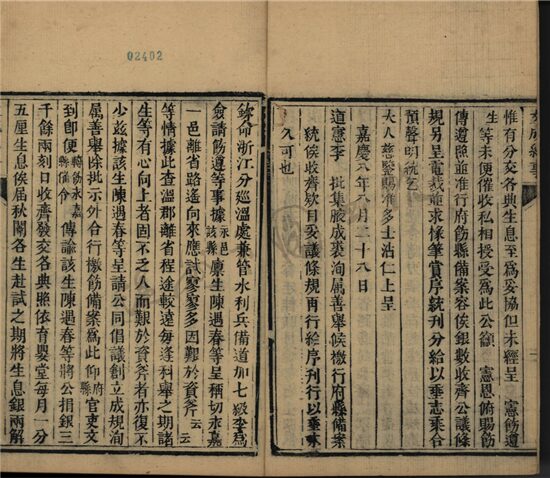 02402
惟有分交各典生息至爲妥協但未經呈 憲飭遵
生等未便催收私相授受爲此公籲 憲恩俯賜飭
傳遵照並准行府飭縣備案容俟銀數收齊公議條
規另呈電裁並求椽筆賞序統刊分給以垂志乘合
預聲明統乞
大人慈鑒賜准多士沾仁上呈
嘉慶八年八月二十八日
道憲李 批集腋成裘洵属善舉候檄行府縣備案
統俟收齊欵日妥議條規再行給序刊行以垂永
久可也
欽命浙江分巡溫處兼管水利兵備道加七級李爲
僉請飭遵等事據永邑該縣廩生陳遇春等呈稱切永嘉
一邑離省路遥向來應試寥寥多因艱於資斧云云
等情據此查溫郡離省程途較遠每逢科舉之期諸
生等有心向上者固不乏人而艱於資斧者亦復不
少兹據該生陳遇春等呈請公同倡議創立成規洵
属善舉除批示外合行檄飭備案爲此仰府官吏文
到即便轉飭永嘉縣備仝傳諭該生陳遇春等將公捐銀三
千餘兩刻日收齊發交各典照依育嬰堂每月一分
五厘生息俟届秋闈各生赴試之期將生息銀兩解